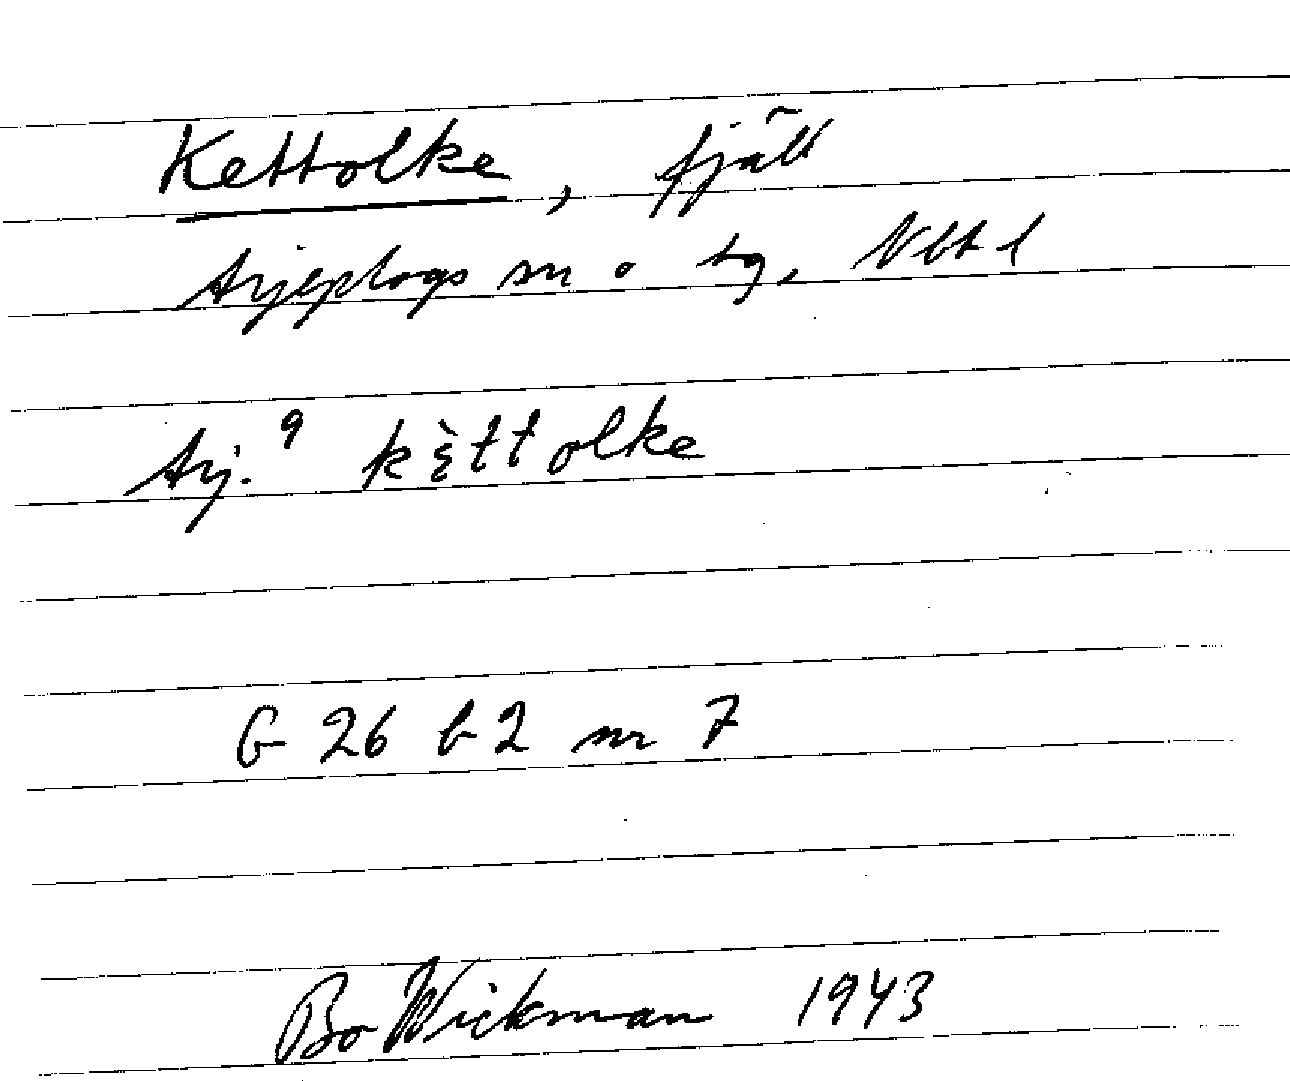 Kettolke, fjäll
Arjeplogs sn o tg, Vbt l
Arj. 9 kὲttolke
G 26 b 2 nr 7
Bo Wickman 1943